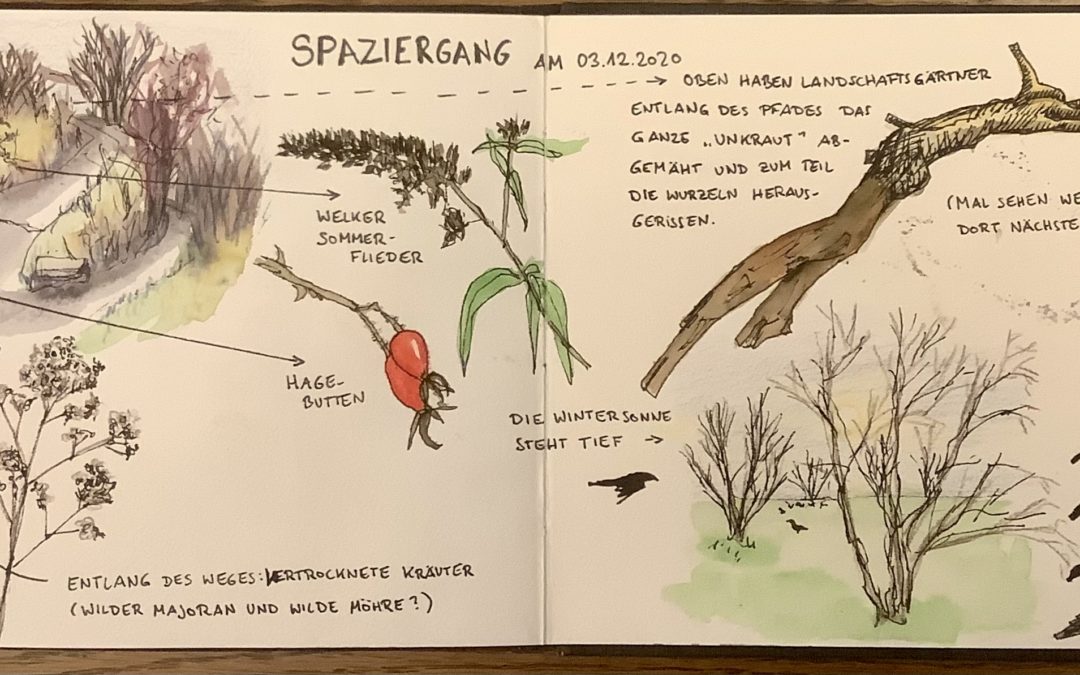 SPAZIERGANG AM 03.12.2020
OBEN HABEN LANDSCHAFTSGÄRTNER
ENTLANG DES PFADES DAS
GANZE „UNKRAUT" AB-
GEMÄHT UND ZUM TEIL
DIE WURZELN HERAUS-
GERISSEN.
(MAL SEHEN WE
DORT NÄCHSTE
WELKER
SOMMER-
FLIEDER
HAGE-
BUTTEN
DIE WINTERSONNE
STEHT TIEF
ENTLANG DES WEGES: VERTROCKNETE KRÄUTER
(WILDER MAJORAN UND WILDE MÖHRE?)